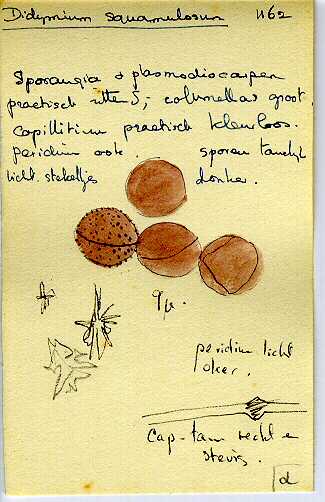 Didymium squamulosum 1162
Sporangia & plasmodiocarpen
practisch zittend; columella groot.
Capillitium practisch kleurloos.
peridium ook. sporen
licht. stekeltjes donker.
9µ.
peridium licht
oker.
Cap. recht en
stevig.
d